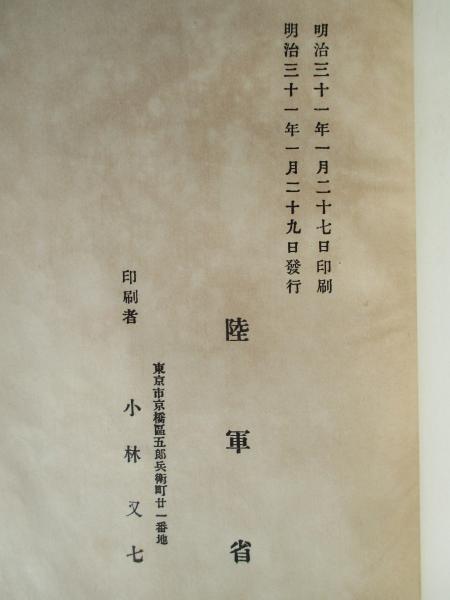 明治三十一年一月二十七日印刷
明治三十一年一月二十九日發行
陸軍省
東京市京橋區五郎兵衛町廿一番地
印刷者 小林又七